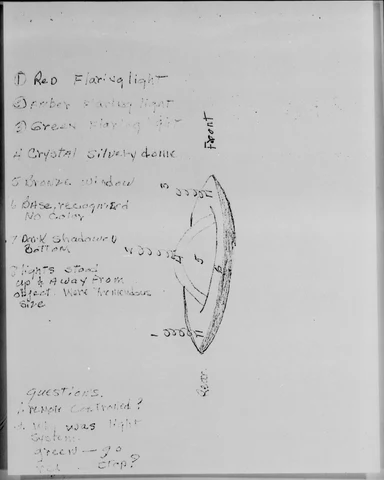 ① Red Flaring light
② Amber Flaring light
③ Green Flaring light
4 Crystal Silvery dome
5 Bronze window
6 Base, recognized
No Color
7 Dark Shadowed
Bottom
lights stood
up & Away From
object. Were Tremendous
size
Front
3
2
4
5
6
1
Rear
Questions.
1. remote controlled?
2. Why was light
System.
green — go
red — stop?